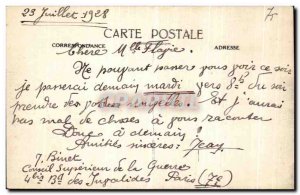 23 Juillet 1928
CARTE POSTALE
CORRESPONDANCE
ADRESSE
Chère Mlle
Ne pouvant passer vous voir ce soir
je passerai demain mardi vers 8h du soir
prendre des Et j'aurai
pas mal de choses à vous raconter
Donc à demain!
Amitiés sincères: Jean
J. Binet
Conseil Supérieur de la Guerre
4bis Bd des Invalides Paris (7e)